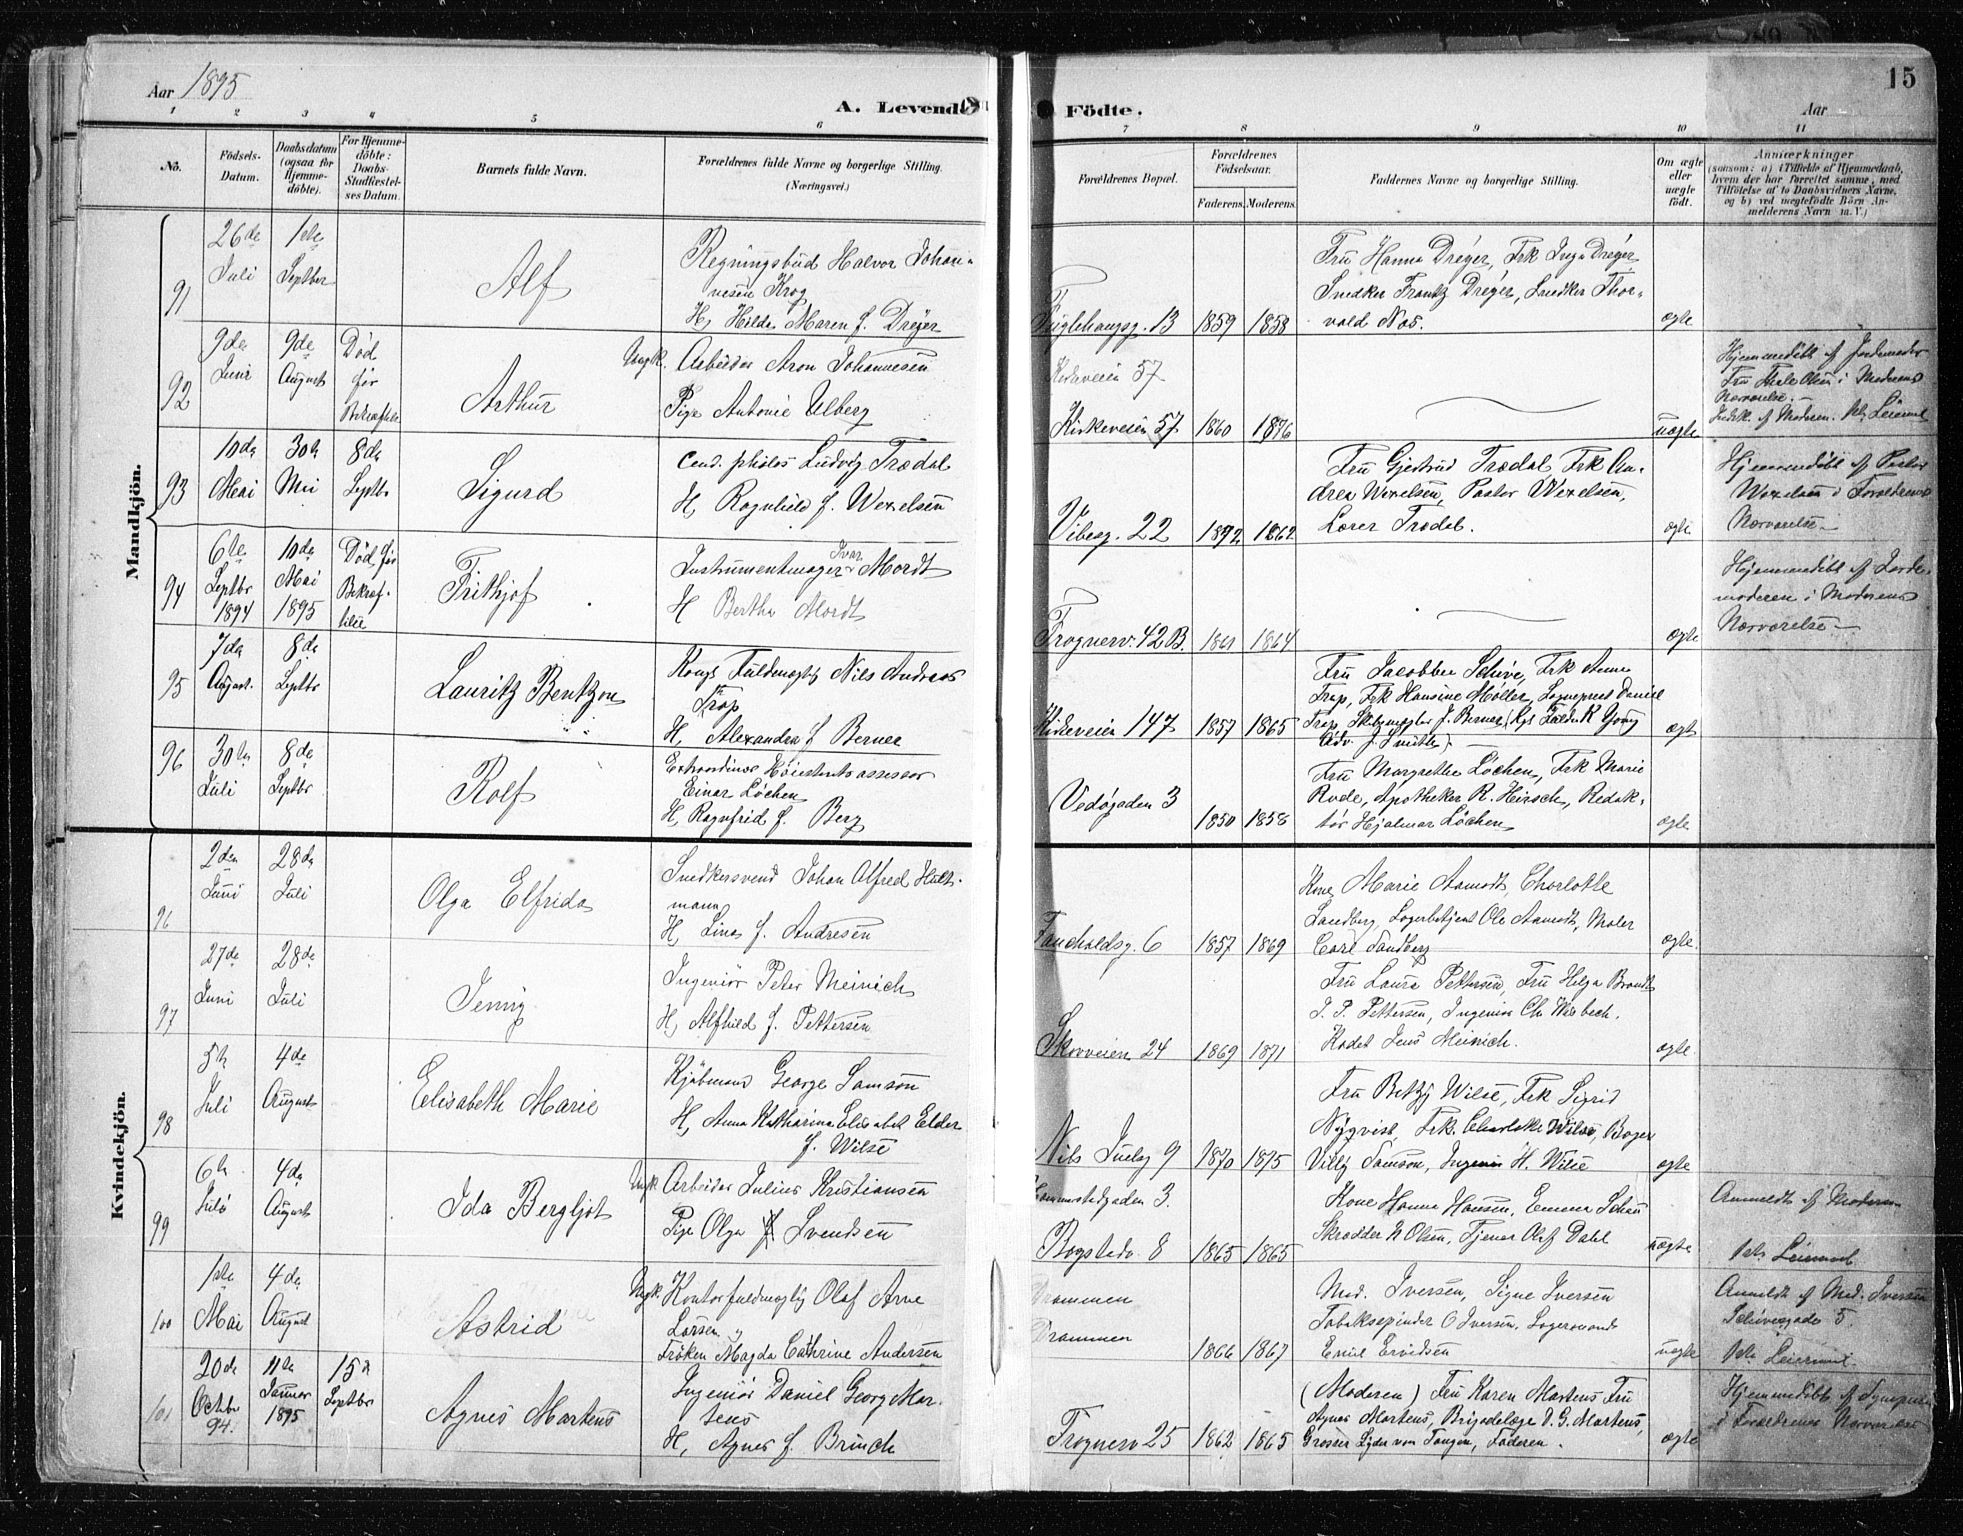 Aar 1895
A. Levende
Födte.
15
Aar
1 2 3 4 5 6 7 8 9 10 11
No.
Födsels-
Datum.
Daabsdatum
(ogsaa for
Hjemme-
döbte).
For Hjemme-
döbte:
Daabs-
Stadfæstel-
ses Datum.
Barnets fulde Navn.
Forældrenes fulde Navne og borgerlige Stilling.
(Næringsvei.)
Forældrenes Bopæl.
Forældrenes
Födselsaar.
Faderens. Moderens.
Faddernes Navne og borgerlige Stilling.
Om ægte
eller
uægte
födt.
Anmærkninger
(saasom: a) i Tilfælde af Hjemmedaab,
hvem der har forrettet samme, med
Tilföielse af to Daabsvidners Navne,
og b) ved uægtefödte Börn An-
melderens Navn m. V.)
Mandkjön.
91
26de
Juli
1ste
Septber
Alf
Regningsbud Halvor Johan-
nesen Krog
H, Hilda Maren f. Dreyer
Fuglehaugsg. 13
1859 1858
Fru Hanna Dreyer, Frk Inga Dreyer
Snedker Frantz Dreyer, Snedker Thor-
vald Nos.
ægte
92
9de
Juni
9de
August
Død
før
Bekræftelse
Arthur
Ungk. Arbeider Aron Johannesen
Pige Antonie Ulberg
Kirkeveien 57
Kirkeveien 57
1860 1876
uægte
Hjemmedöbt af Jordemoder
Fru Thale Olsen i Moderens
Nærværelse.
af Moderen. 1ste Leiermaal
93
10de
Mai
30te
Mai
8de
Septbr
Sigurd
Cand. philos Ludvig Trædal
H, Ragnhild f. Wexelsen
Vibesg. 22
1872 1862
Fru Gjertrud Trædal Frk An-
drea Wexelsen, Pastor Wexelsen,
Lærer Trædal.
ægte
Hjemmedöbt af Pastor
Wexelsen i Forældrenes
Nærværelse
94
6te
Septbr
1894
10de
Mai
1895
Død før
Bekræf-
telse
Frithjof
Instrumentmager Ivar Mordt
H Bertha Mordt
Frognerv. 42B.
1861 1864
ægte
Hjemmedöbt af Jorde-
moderen i Moderens
Nærværelse
95
7de
August.
8de
Septbr
Lauritz Bentzon
Kongl Fuldmægtig Nils Andreas
Trap
H, Alexandra f Berner
Kirkeveien 147
1857 1865
Fru Jacobbea Schive, Frk Anna
Trap, Frk Hansine Møller, Sogneprest Daniel
Trap, J. Berner,
ægte
96
30te
Juli
8de
Septbr
Rolf
Extraordinær Høiesteretsassessor
Einar Løchen
H, Ragnfrid f. Berg
Vedøgaden 3
1850 1858
Fru Margrethe Løchen, Frk Marie
Rode, Apotheker R. Hirsch, Redak-
tør Hjalmar Løchen
ægte
Kvindekjön.
96
2den
Juni
28de
Juli
Olga Elfrida
Snedkersvend Johan Alfred Hult-
mann
H, Lina f. Andresen
Fauchaldsg. 6
1857 1869
Kone Marie Aamodt, Charlotte
Sandberg, Lagerbetjent Ole Aamodt, Maler
Carl Sandberg
ægte.
97
27de
Juni
28de
Juli
Jenny
Ingeniør Peter Meinich
H, Alfhild f. Pettersen
Skovveien 24
1869 1871
Fru Laura Pettersen, Fru Helga Brandt
J. P. Pettersen, Ingeniør Chr Wisbech.
Kadet Jens Meinich.
ægte
98
5te
Juli
4de
August
Elisabeth Marie
Kjøbmand George Samson
H, Anna Katharina Elisabet Elder
f. Wilse
Nils Juelsg 9
1870 1875
Fru Betzy Wilse, Frk Sigrid
Nyqvist, Frk. Charlotte Wilse, Bager
Villy Samson, Ingeniør H. Wilse
ægte
99
6te
Juli
4de
August
Ida Bergljot
Ungk. Arbeider Julius Kristiansen
Pige Olga Svendsen
3.
Bogstadv. 8
1865 1865
Kone Hanna Hansen, Emma Schau
Skrædder N Olsen, Tjener Olaf Dahl
uægte
Anmeldt af Moderen
1ste Leiermaal
100
1ste
Mai
4de
August
Astrid
Ungk. Kontorfuldmægtig Olaf Arne
Larsen
Frøken Magda Cathrine Andersen
Drammen
Drammen
1866 1867
Mad. Iversen, Signe Iversen
Tobakspinder O Iversen, Lagermand
Emil Ervidsen
uægte
Anmeldt af Mad. Iversen
Schivesgade 5.
1ste Leiermaal.
101
20de
Octbr
94.
11te
Januar
1895
15de
Septbr
Agnes Martens
Ingeniør Daniel Georg Mar-
tens
H, Agnes f. Brinch
Frognerv 25
1862 1865
(Moderen) Fru Karen Martens Fru
Agnes Martens, Brigadelæge D. G. Martens,
Grosser Lyder von Tangen, Faderen.
ægte
Hjemmedöbt af Sognepræst
i Forældrenes Nærværelse